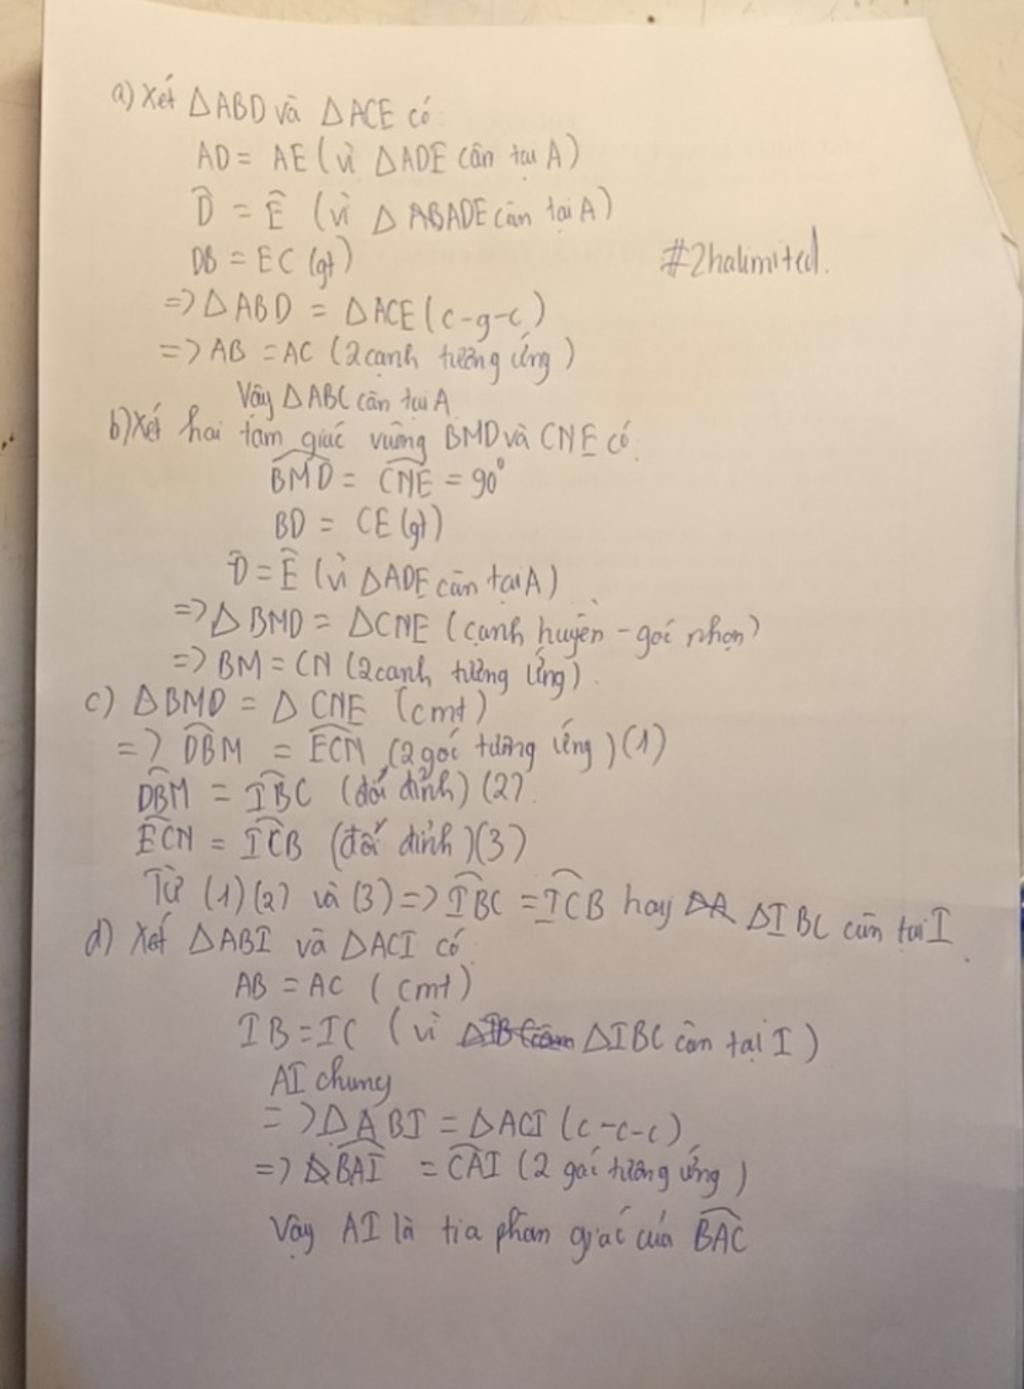 a) Xét △ABD và △ACE có:
AD = AE (vì △ADE cân tại A)
D̂ = Ê (vì △ ABADE cân tại A)
DB = EC (gt)
#2halimited.
=> △ABD = △ACE (c-g-c)
=> AB = AC (2 cạnh tương ứng)
Vậy △ABC cân tại A
b) Xét hai tam giác vuông BMD và CNE có:
BMD = CNE = 90°
BD = CE (gt)
D̂ = Ê (vì △ADE cân tại A)
=> △ BMD = △CNE (cạnh huyền - góc nhọn)
=> BM = CN (2 cạnh tương ứng).
c) △BMD = △ CNE (cmt)
=> DBM = ECN (2 góc tương ứng) (1)
DBM = IBC (đối đỉnh) (2).
ECN = ICB (đối đỉnh) (3)
Từ (1) (2) và (3) => IBC = ICB hay △IBC cân tại I.
d) Xét △ABI và △ACI có:
AB = AC (cmt)
IB = IC (vì △IBC cân tại I)
AI chung
=> △ABI = △ACI (c-c-c)
=> BAI = CAI (2 góc tương ứng)
Vậy AI là tia phân giác của BAC